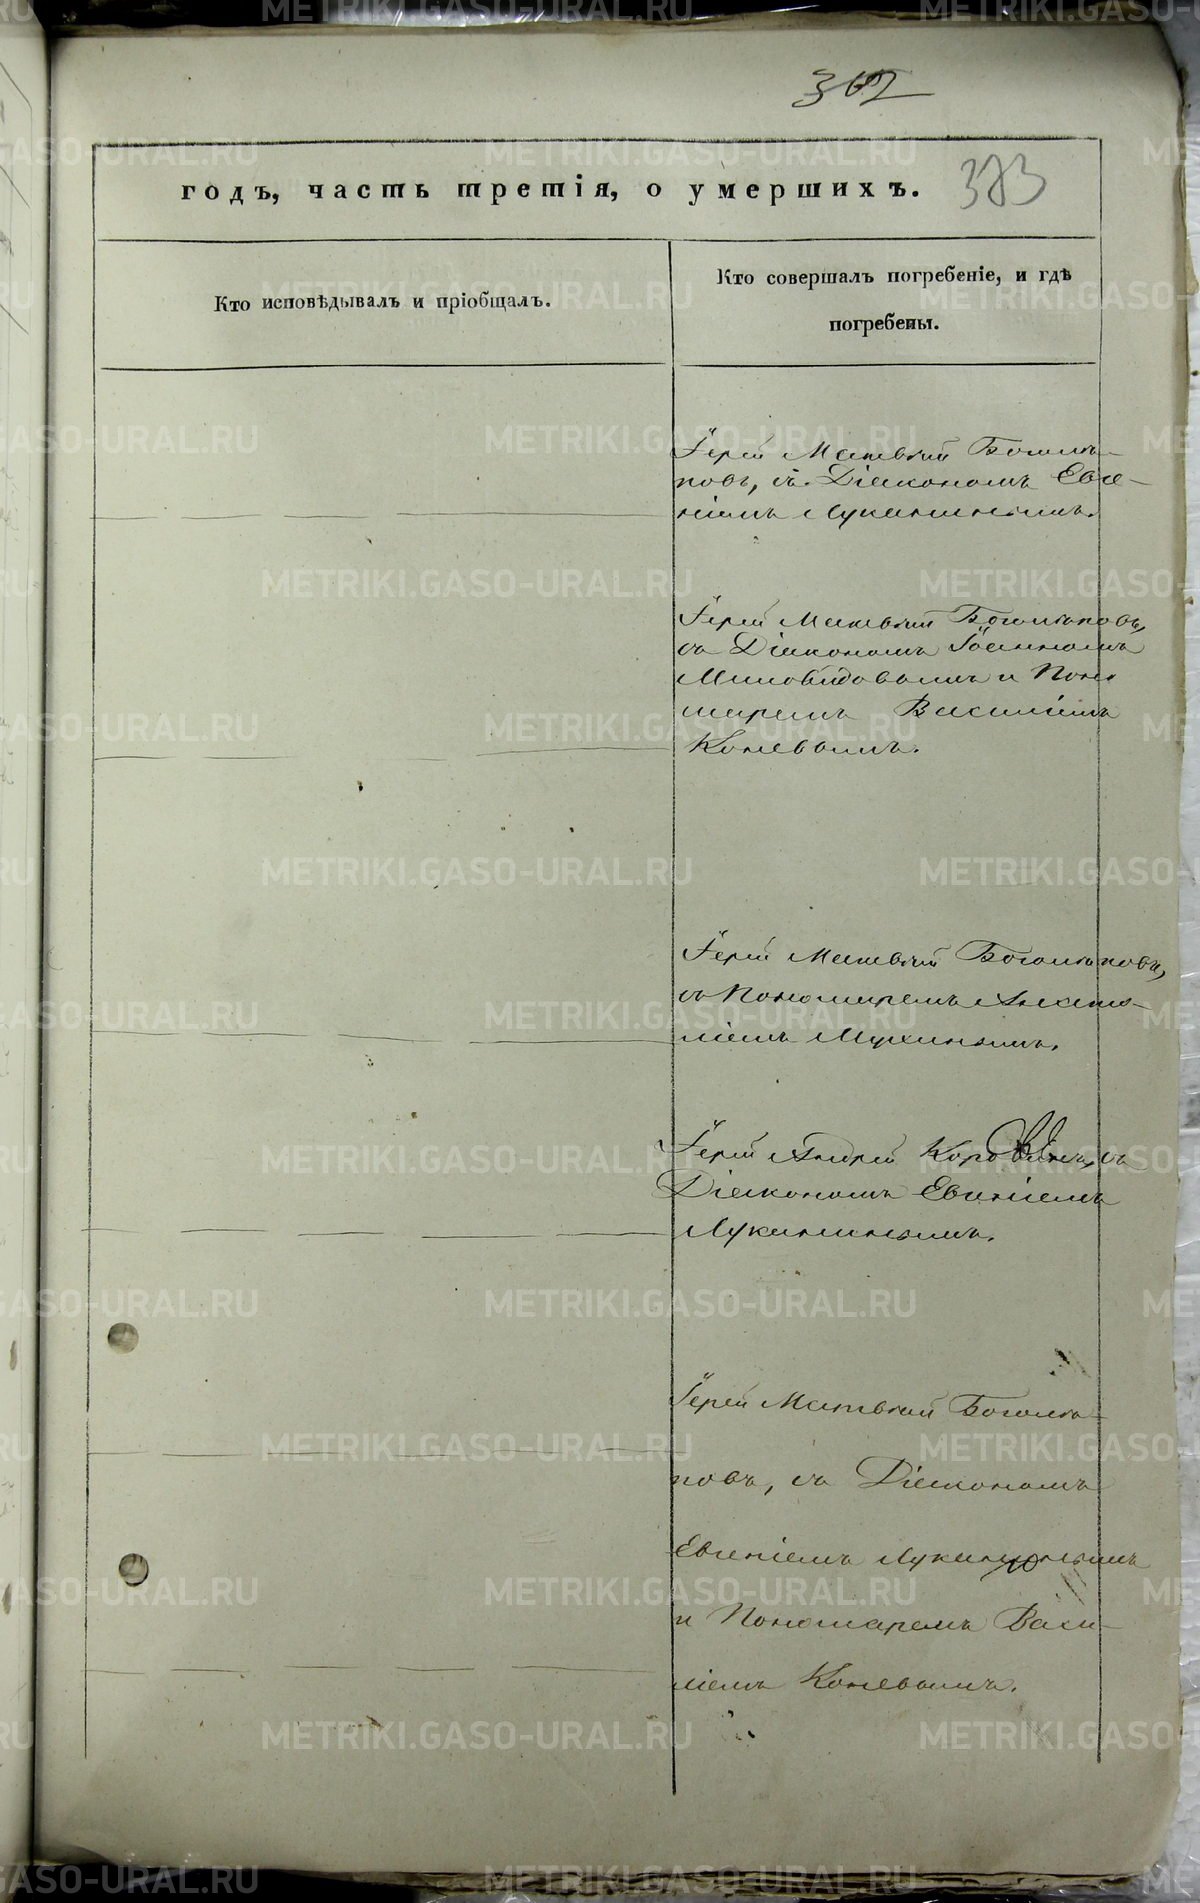 302
годъ, часть третія, о умершихъ.
383
Кто исповѣдывалъ и пріобщалъ.
Кто совершалъ погребеніе, и гдѣ
погребены.
Іерей Матвѣй Боголѣ-
повъ, съ Діакономъ Евге-
ніемъ Луканинымъ.
Іерей Матвѣй Боголѣповъ,
съ Діакономъ Іоанномъ
Миловидовымъ и Поно
маремъ Василіемъ
Коневымъ.
Іерей Матвѣй Боголѣповъ,
съ Пономаремъ
Мухинымъ.
Іерей Андрей Коровинъ, съ
Діакономъ Евгеніемъ
Луканинымъ.
Іерей Матвѣй Боголѣ-
повъ, съ Діакономъ
Евгеніемъ Луканинымъ
и Пономаремъ Васи-
ліемъ Коневымъ.
METRIKI.GASO-URAL.RU